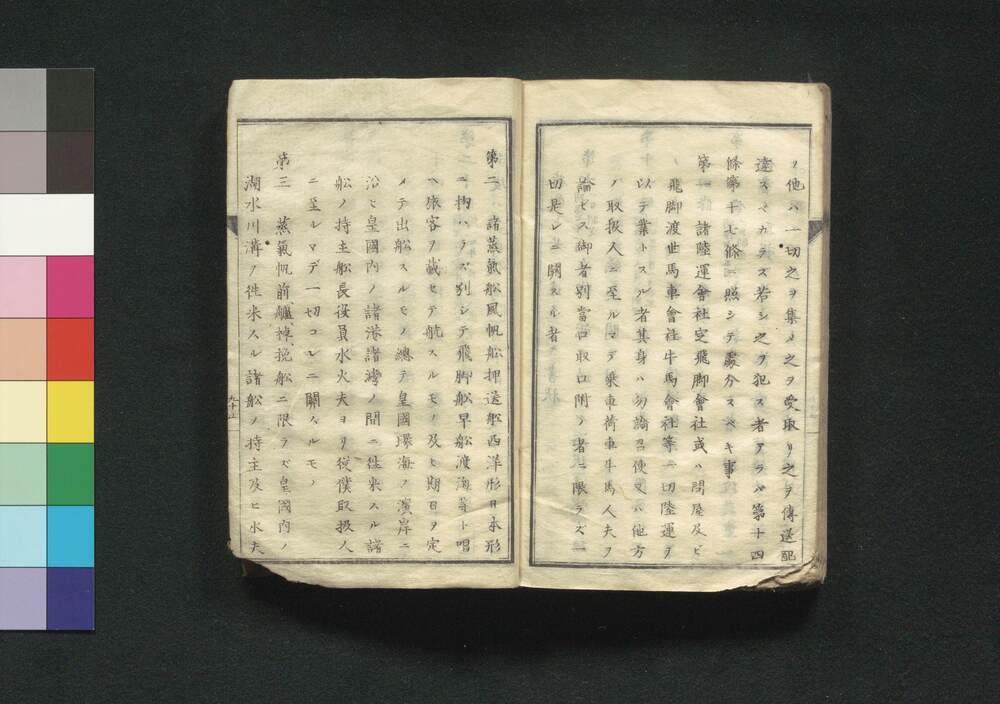 ノ他ハ一切之ヲ集メ之ヲ受取リ之ヲ傳送配
達スベカラズ若シ之ヲ犯ス者アラバ第十四
條第十七條ニ照シテ處分スベキ事
第一 諸陸運會社定飛脚會社或ハ問屋及ビ
飛脚渡世馬車會社牛馬會社等一切陸運ヲ
以テ業トスル者其身ハ勿論召使又ハ他方
ノ取扱人ニ至ルマデ乘車荷車牛馬人夫ヲ
論ゼス御者別當口取口附ノ者ニ限ラズ一
切是レニ關スル者
第二 諸蒸氣船風帆船押送船西洋形日本形
ニ拘ハラズ別シテ飛脚船早船渡海等ト唱
ヘ旅客ヲ載セテ航スルモノ及ヒ期日ヲ定
メテ出船スルモノ總テ皇國環海ノ濱岸ニ
沿ヒ皇國内ノ諸港諸灣ノ間ニ徃来スル諸
船ノ持主船長役員水火夫ヨリ従僕取扱人
ニ至ルマデ一切コレニ關スルモノ
第三 蒸氣帆前艫棹挽船ニ限ラズ皇國内ノ
湖水川溝ノ徃来スル諸船ノ持主及ヒ水夫
九十五